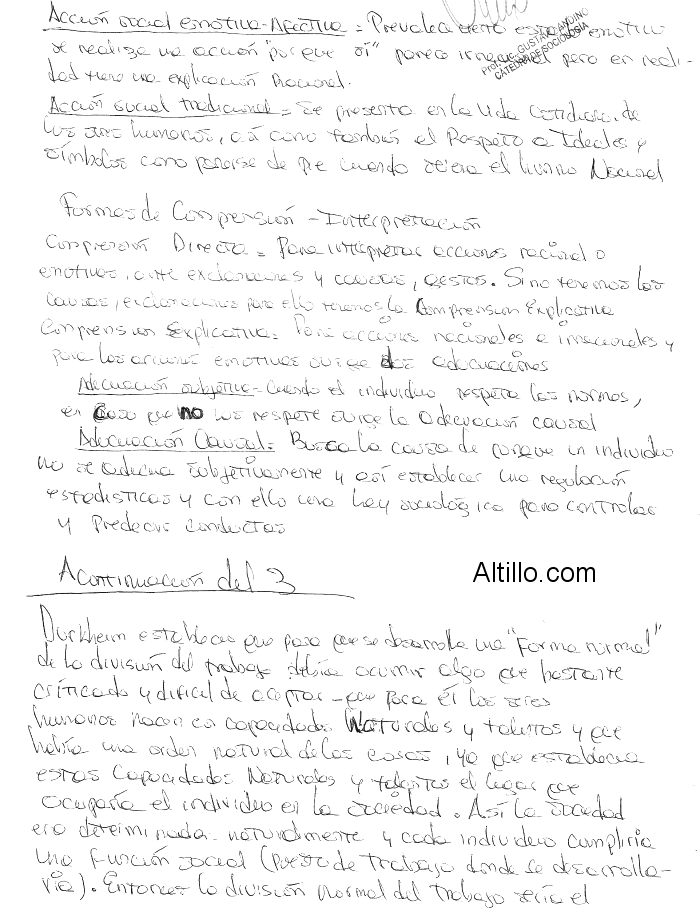 Acción social emotiva-Afectiva = Prevalece cierto estado emotivo
se realiza una acción "porque sí" parece irracional pero en reali-
dad tiene una explicación Racional.
Prof. Lic. GUSTAVO ANDINO
CÁTEDRA DE SOCIOLOGÍA
Acción social tradicional = Se presenta en la Vida Cotidiana de
los seres humanos, así como también el Respeto a Ideales y
símbolos como ponerse de pie cuando suena el himno Nacional
Formas de Comprensión - Interpretación
Comprensión Directa = Para interpretar acciones racional o
emotivas, ante exclamaciones y causas, gestos. Si no tenemos las
causas, exclamaciones para ello tenemos la Comprension Explicativa
Comprension Explicativa = Para acciones racionales e irracionales y
para las acciones emotivas surge dos adecuaciones
Adecuación subjetiva - Cuando el individuo respeta las normas,
en caso que no las respete surge la adecuación causal
Adecuación Causal = Busca la causa de porque un individuo
no se adecua subjetivamente y así establecer una regulación
estadisticas y con ello una Ley sociológica para controlar
y Predecir conductas
A continuación del 3
Altillo.com
Durkheim establecia que para que se desarrolle una "Forma normal"
de la división del trabajo debía ocurrir algo que bastante
criticado y dificil de aceptar - que para él los seres
humanos nacen con capacidades Naturales y talentos y que
habría una orden natural de las cosas, ya que establecia
estas Capacidades Naturales y talentos el lugar que
ocuparía el individuo en la sociedad. Así la sociedad
era determinada naturalmente y cada individuo cumpliria
una función social (Puesto de trabajo donde se desarrolla-
ría). Entonces la división normal del trabajo sería el